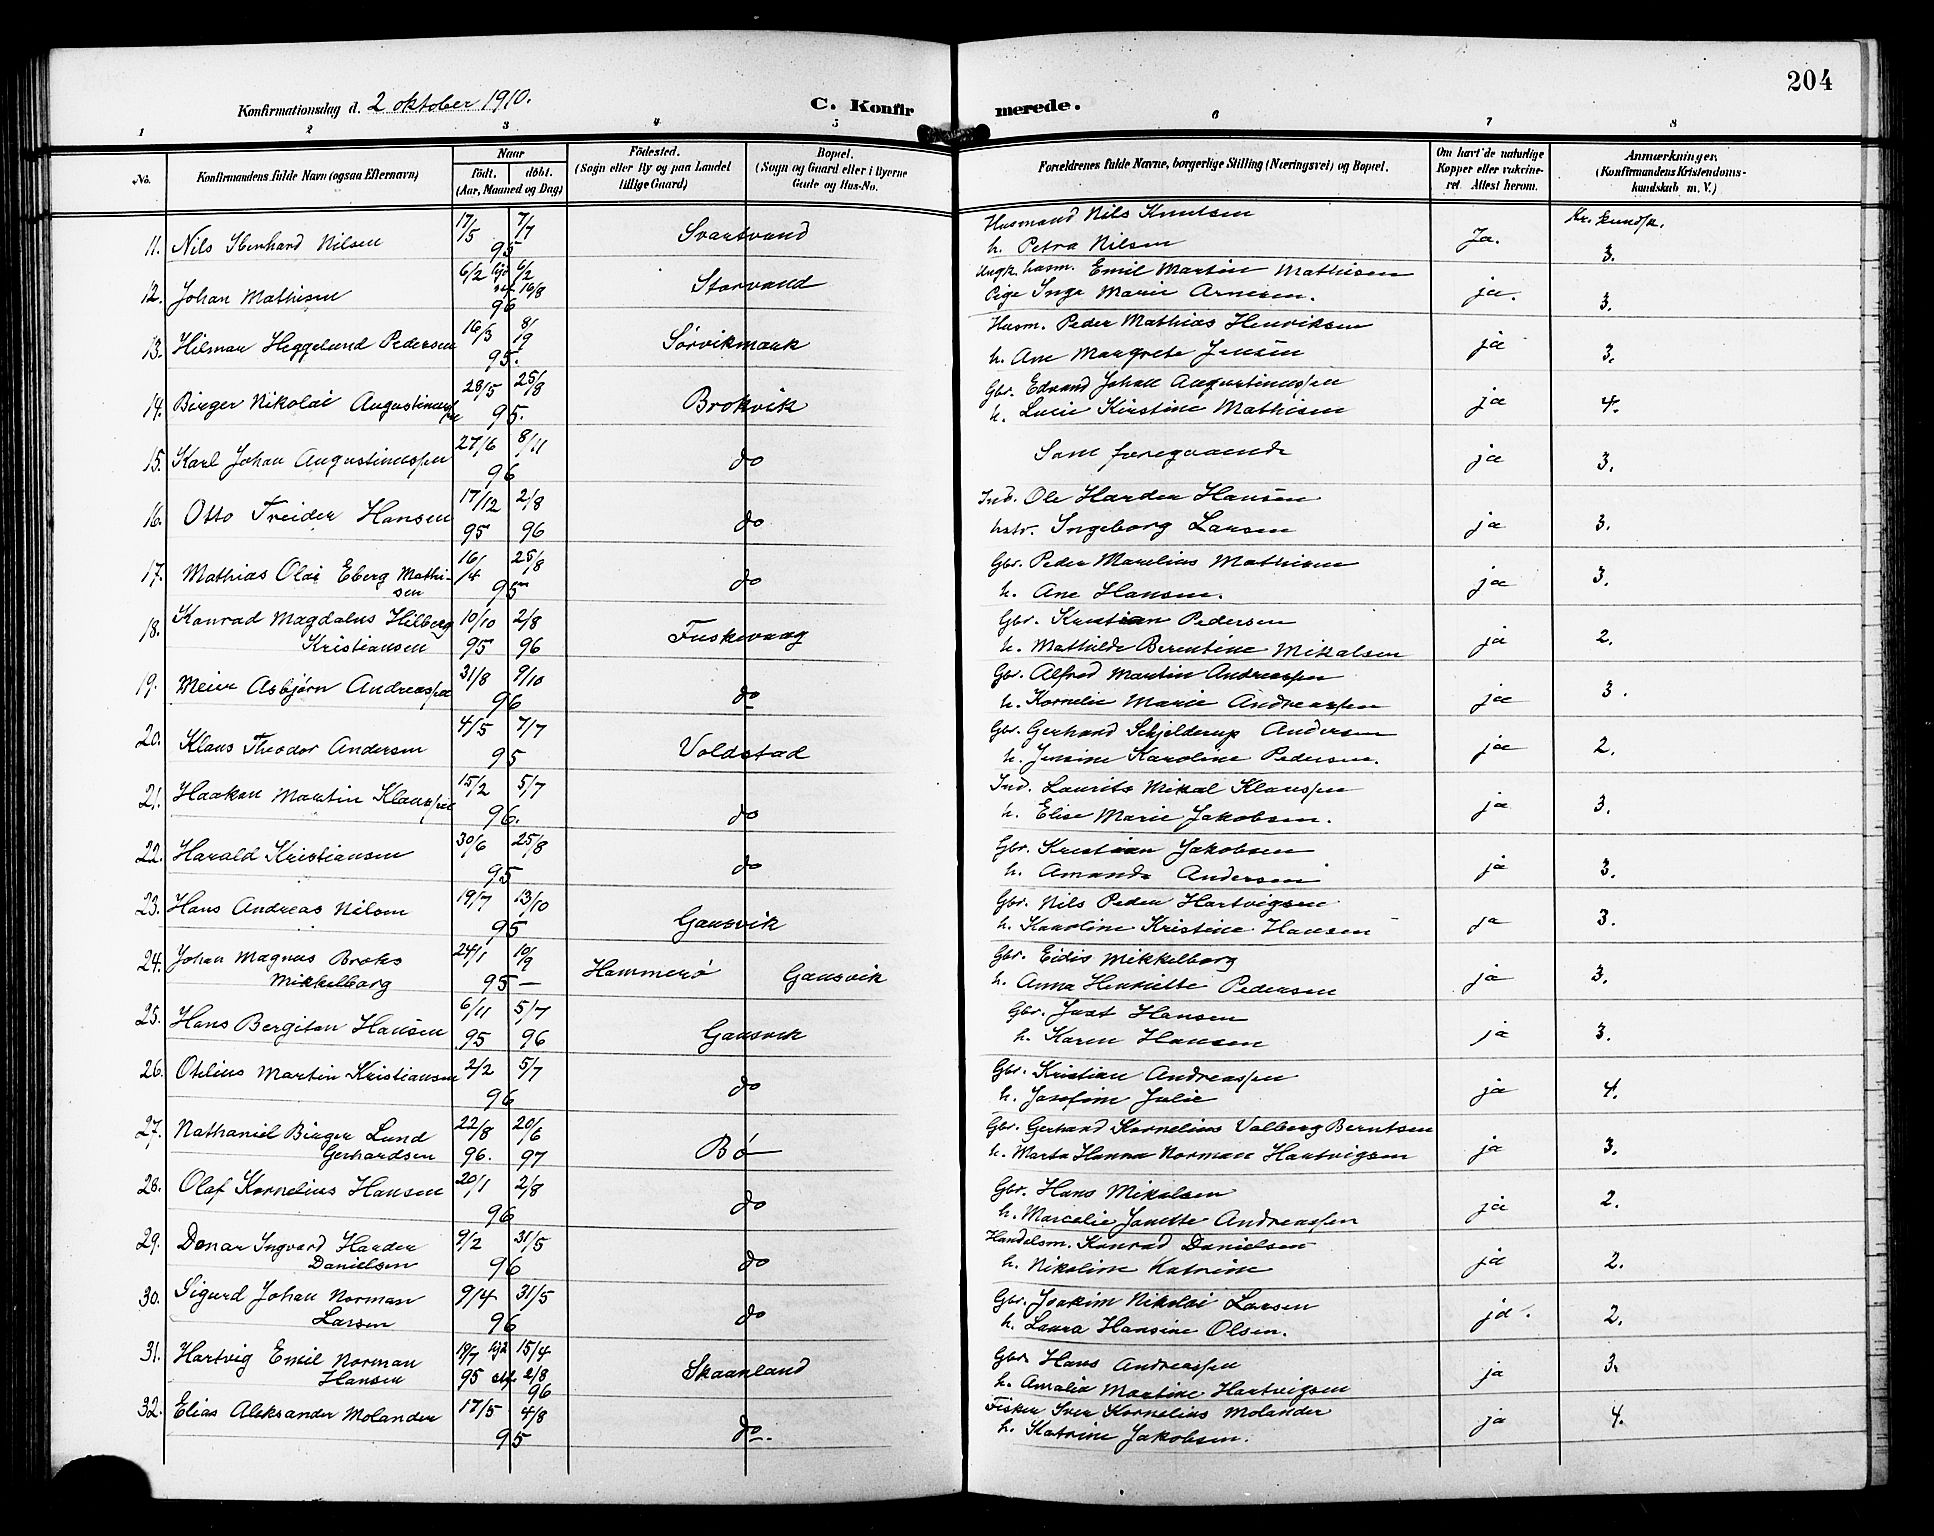 204
Konfirmationsdag d. 2 oktober 1910.
C. Konfirmerede.
1 2 3 4 5 6 7 8
No.
Konfirmandens fulde Navn (ogsaa Efternavn)
Naar
født. døbt.
(Aar, Maaned og Dag)
Fødested.
(Sogn eller By og paa Landet
tillige Gaard)
Bopæl.
(Sogn og Gaard eller i Byerne
Gade og Hus-No.
Forældrenes fulde Navne, borgerlige Stilling (Næringsvei) og Bopæl.
Om havt de naturlige
Kopper eller vakcine-
ret. Attest herom.
Anmærkninger.
(Konfirmandens Kristendoms-
kundskab m. V.)
11. Nils Eberhard Nilsen 17/5 7/7 95 Svartvand Husmand Nils Knutsen Ja. Kr. kundsk.
h. Petra Nilsen 3.
12. Johan Mathisen 6/2 hjd 6/2 Storvand Ungk. husm. Emil Martin Mathisen
stf. 16/8 96 Pige Inga Marie Arnesen. ja. 3.
13. Hilmar Heggelund Pedersen 16/3 8/19 95. Sørvikmark Husm. Peder Mathias Henriksen
h. Ane Margrete Jensen ja 3.
14. Birger Nikolai Augustinussen 28/5 25/8 95. Brokvik Gbr. Edvard Johan Augustinussen
h. Lucie Kirstine Mathisen ja 4.
15. Karl Johan Augustinussen 27/6 8/11 96 do Som foregaaende ja 3.
16. Otto Freider Hansen 17/12 2/8 do Ind. Ole Harder Hansen
95 96 hstr. Ingeborg Larsen ja 3.
17. Mathias Olai Eberg Mathi- 16/14 25/8 do Gbr. Peder Marelius Mathisen
sen 95 h. Ane Hansen. ja 3.
18. Konrad Magdalus Hilberg 10/10 2/8 Fuskevaag Gbr. Kristian Pedersen
Kristiansen 95 96 h. Mathilde Berentine Mikalsen ja 2.
19. Meier Asbjørn Andreassen 31/8 9/10 96 do Gbr. Alfred Martin Andreassen
h. Kornelie Marie Andreassen ja 3.
20. Klaus Theodor Andersen 4/5 7/7 95 Voldstad Gbr. Gerhard Schjelderup Andersen
h. Jensine Karoline Pedersen. ja 2.
21. Haakon Martin Klaussen 15/2 5/7 96. do Ind. Laurits Mikal Klaussen
h. Elise Marie Jakobsen. ja 3.
22. Harald Kristiansen 30/6 25/8 95 do Gbr. Kristian Jakobsen
h. Amanda Andersen ja 3.
23. Hans Andreas Nilsen 19/7 13/10 95 Gausvik Gbr. Nils Peder Hartvigsen
h. Karoline Kristine Hansen ja 3.
24. Johan Magnus Broks 24/1 10/9 Hammerø Gausvik Gbr. Eidis Mikkelborg
Mikkelborg 95 — h. Anna Henriette Pedersen ja 3.
25. Hans Bergitan Hansen 6/11 5/7 Gausvik Gbr. Just Hansen
95 96 h. Karen Hansen ja 3.
26. Otelius Martin Kristiansen 2/2 5/7 96 do Gbr. Kristian Andreassen
h. Josefine Julie ja 4.
27. Nathaniel Birger Lund 22/8 20/6 Bø Gbr. Gerhard Kornelius Valberg Berntsen
Gerhardsen 96. 97 h. Marta Hanna Norman Hartvigsen ja 3.
28. Olaf Kornelius Hansen 20/1 2/8 96 do Gbr. Hans Mikalsen
h. Marcelie Janette Andreassen ja 2.
29. Donar Ingvard Harder 9/2 31/5 do Handelsm. Konrad Danielsen
Danielsen 96 h. Nikoline Katrine ja 2.
30. Sigurd Johan Norman 9/4 31/5 do Gbr. Joakim Nikolai Larsen
Larsen 96 h. Laura Hansine Olsen. ja. 2.
31. Hartvig Emil Norman 19/7 hjd 15/4 Skaanland Gbr. Hans Andreassen
Hansen 95 stf. 2/8 96 h. Amalia Martine Hartvigsen ja 3.
32. Elias Aleksander Molander 17/5 4/8 95 do. Fisker Iver Kornelius Molander
h. Katrine Jakobsen. ja 4.